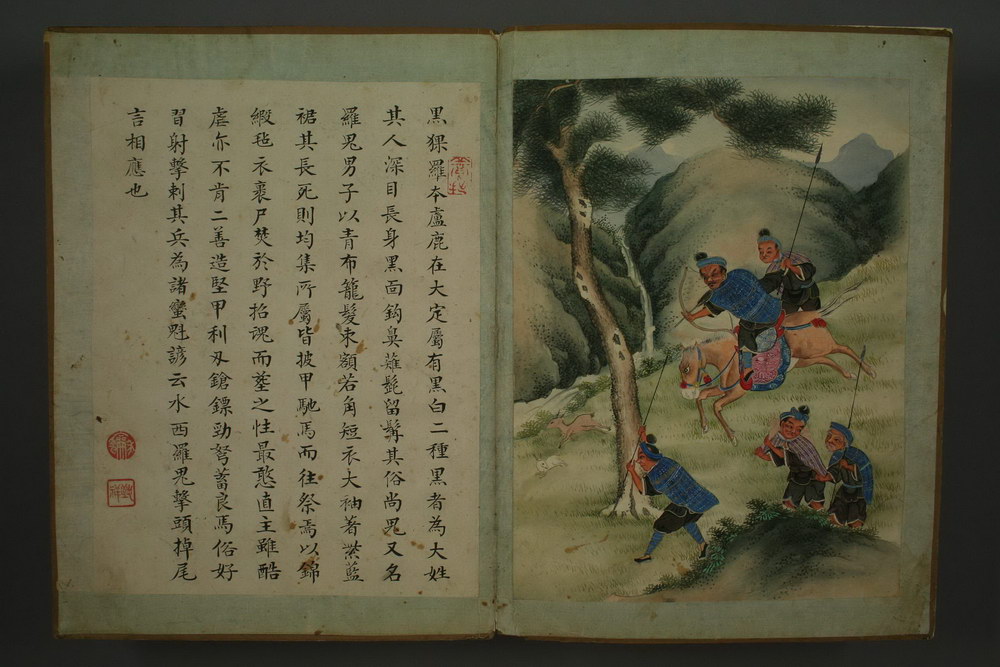 黑猓羅本盧鹿在大定屬有黑白二種黑者為大姓
其人深目長身黑面鈎鼻薙髭留髯其俗尚鬼又名
羅鬼男子以青布籠髮束額若角短衣大袖著紫藍
裙其長死則均集所屬皆披甲馳馬而往祭焉以錦
緞毡衣裹尸焚於野招魂而塟之性最憨直主雖酷
虐亦不肯二善造堅甲利刄鎗鏢勁弩蓄良馬俗好
習射擊刺其兵為諸蠻魁諺云水西羅鬼擊頭掉尾
言相應也